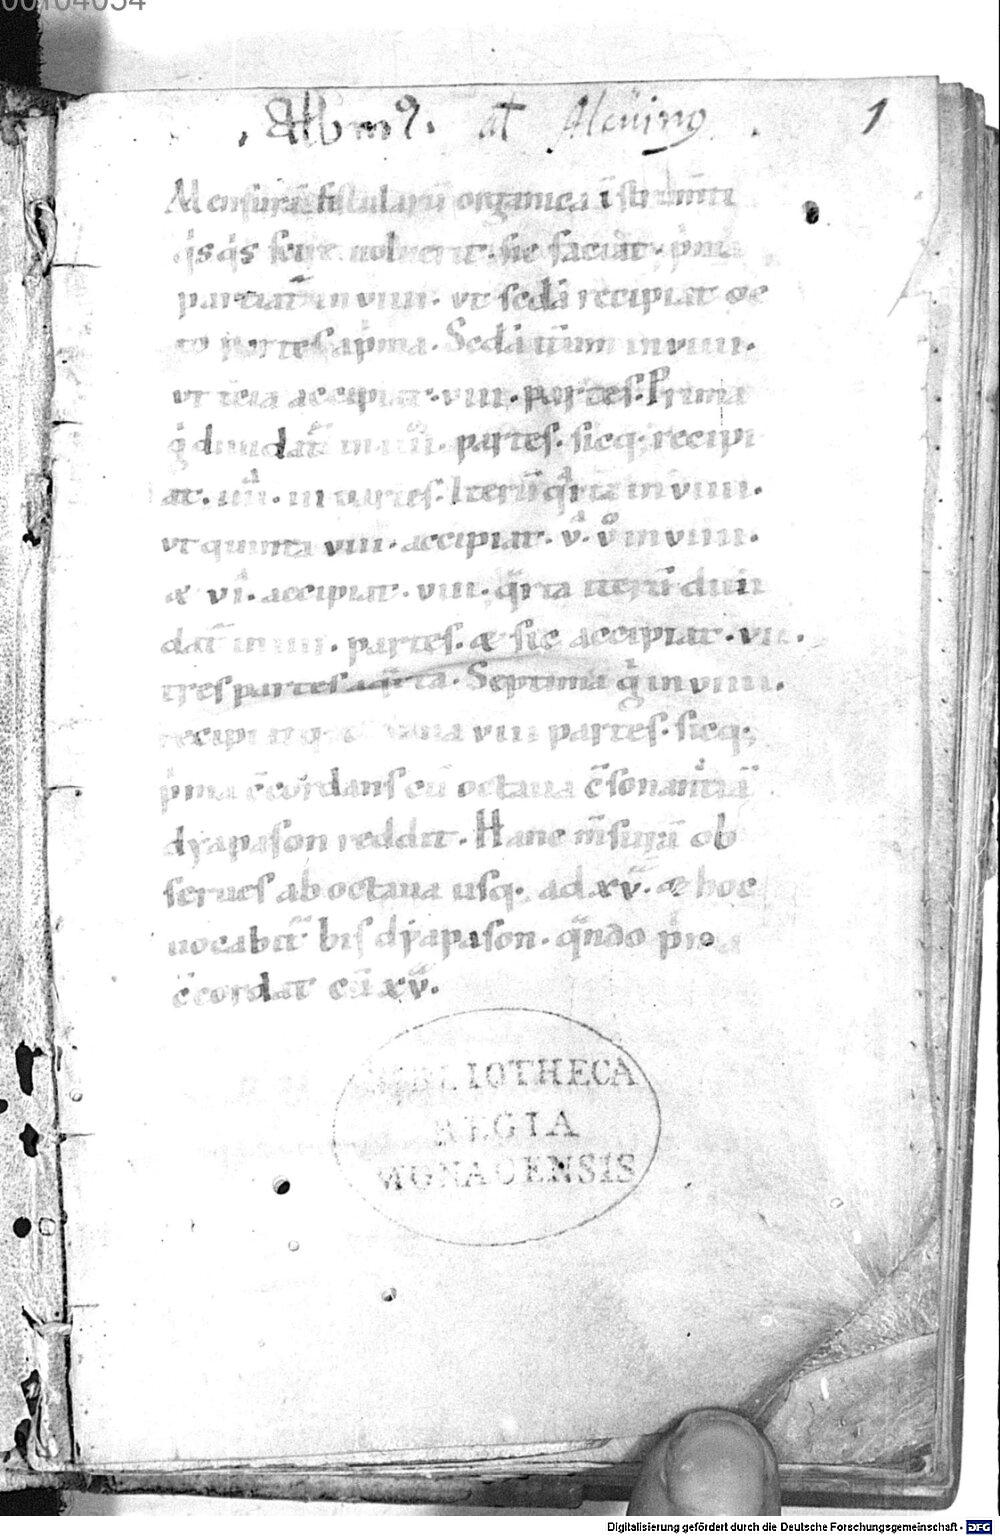 00104054
. Albin9. at Alcuinus . 1
Mensurā fistularū organica īstrumti
q̇s q̇s scire uoluerit. sic faciat. ṗma
partiat̄ in viiii. vt sēdā recipiat oc
to partes aṗma. Sēdā itūm in viiii.
ut tcīa accipiat. viii. partes. Prima
g̊ diuidat̄ in iiii. partes. sicq; recipi
at. iiii. iii partes. Iterū q̊rtā in viiii.
vt quinta viii. accipiat. v. v in viiii.
& vi. accipiat. viii. q̊rta iterū diui
dat̄ in iiii. partes. & sic accipiat. vii.
tres partes a q̊rta. Septima g̊ in viiii.
recipi viii partes. sicq;
ṗma c̄cordans cū octaua c̄sonantiā
dyapason reddit. Hanc m̄surā ob
serues ab octaua usq; ad xv. & hoc
uocabit̄ bis dyapason. q̄ndo ṗma
c̄cordat cū xv.
BIBLIOTHECA
REGIA
MONACENSIS
Digitalisierung gefördert durch die Deutsche Forschungsgemeinschaft - DFG